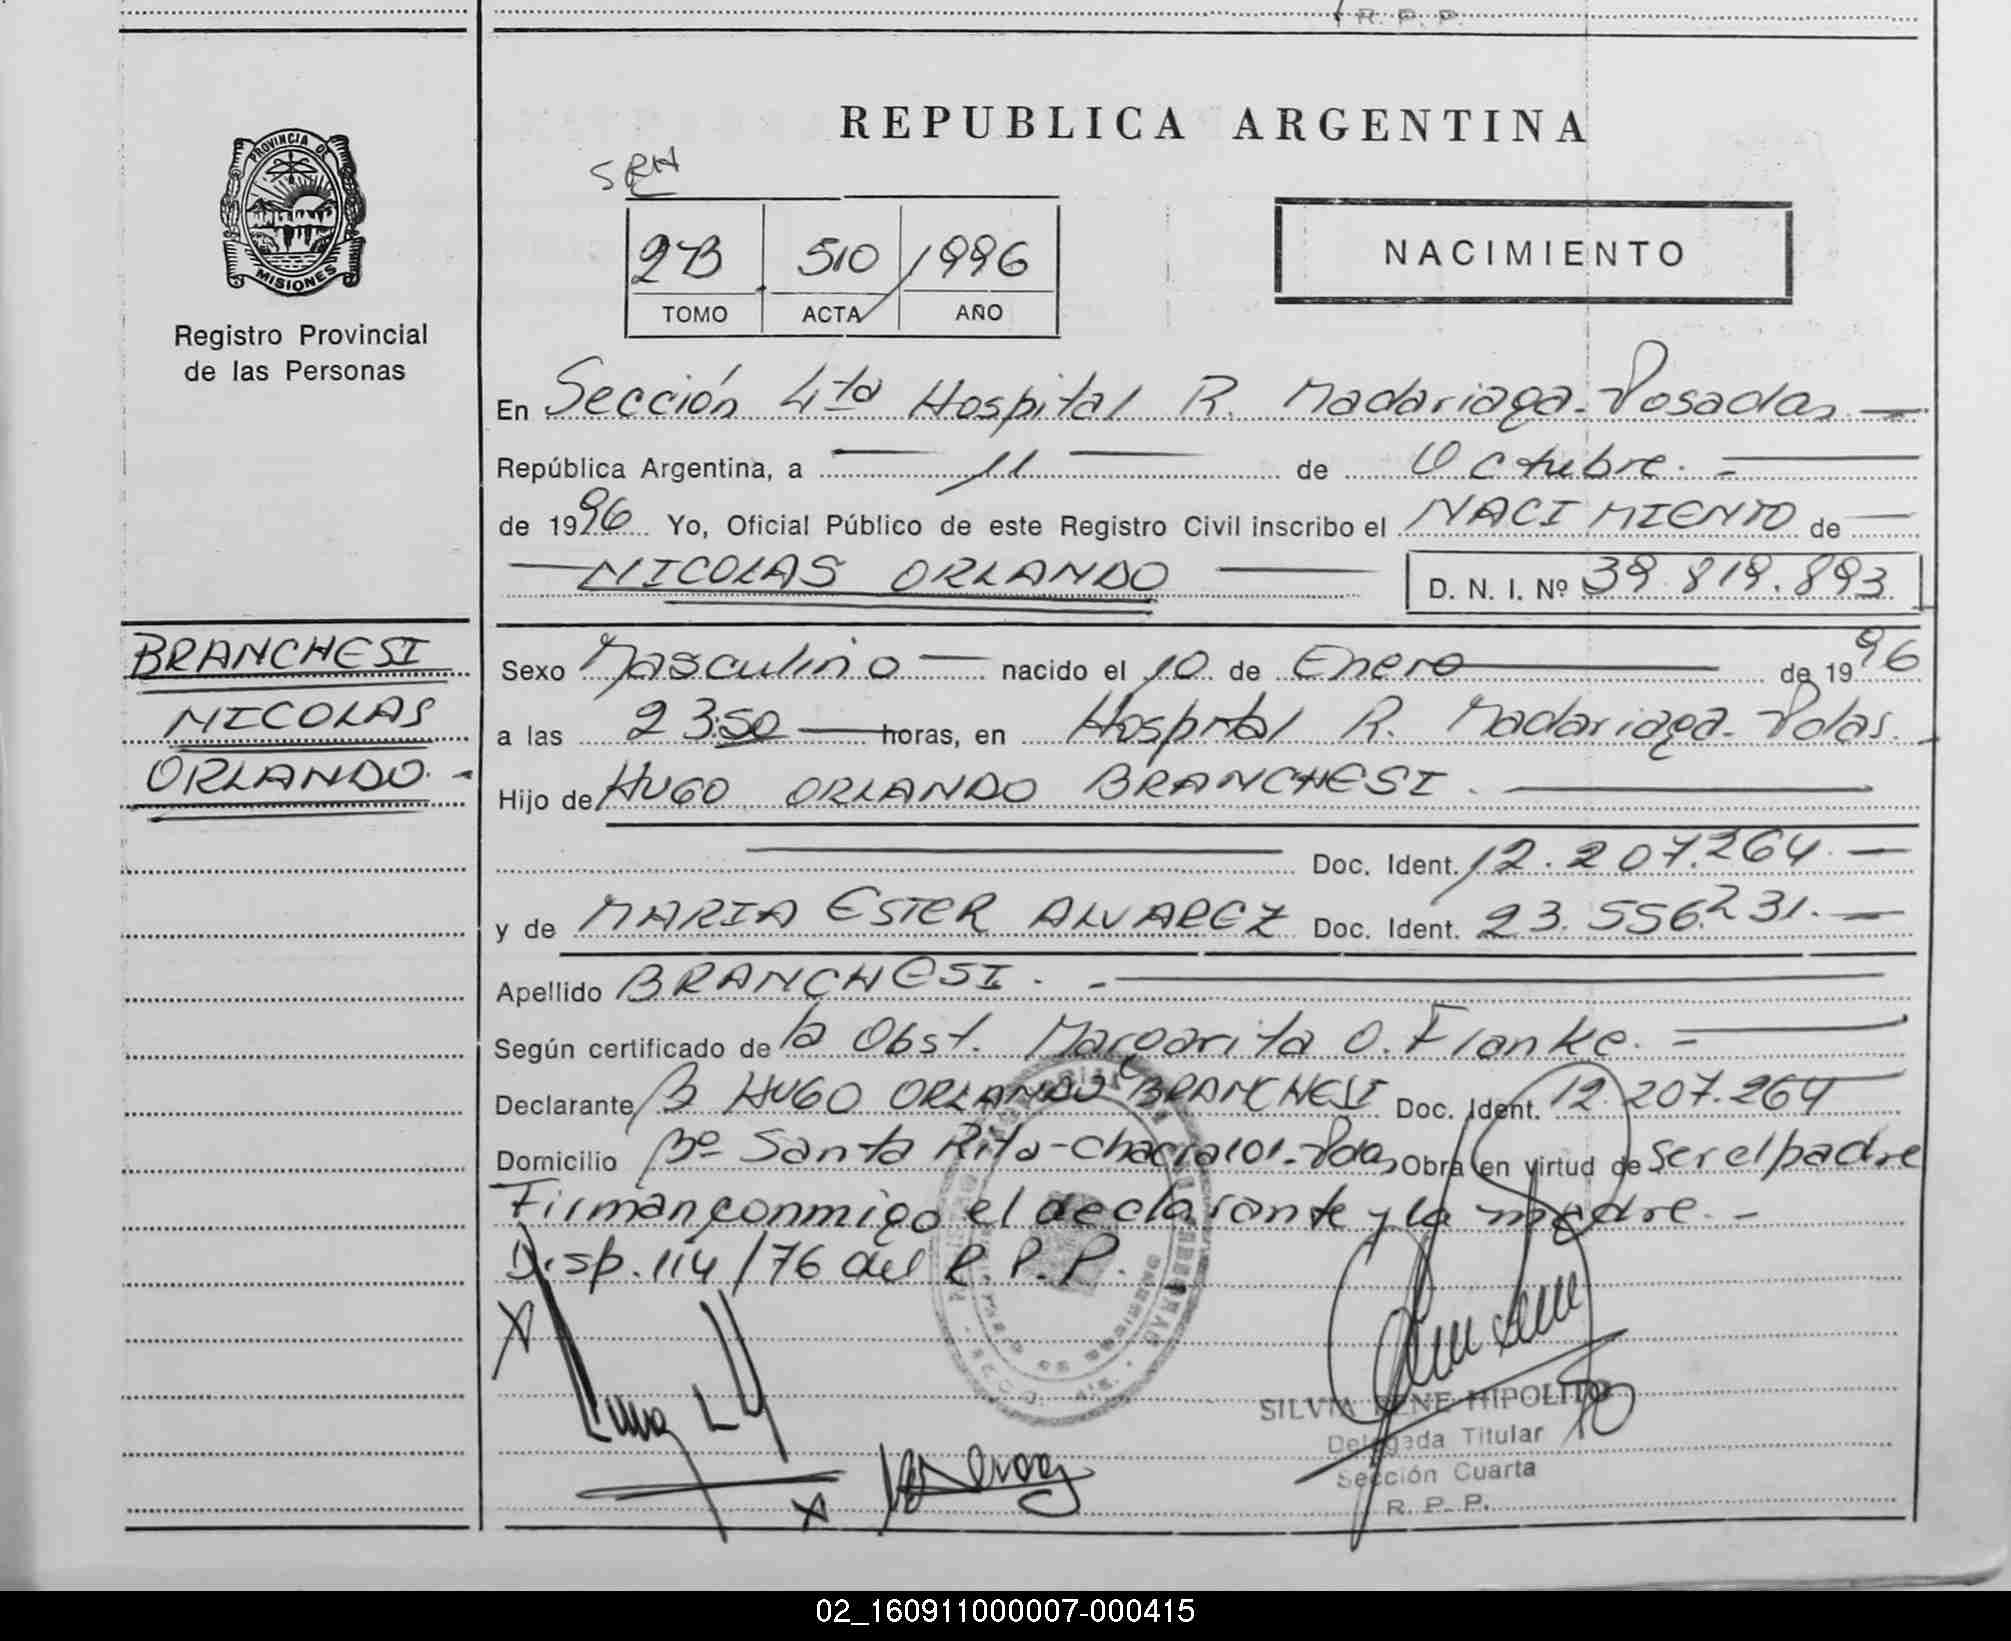 R. P. P.
PROVINCIA DE
MISIONES
Registro Provincial
de las Personas
REPUBLICA ARGENTINA
SRH
2B 510 1996
TOMO ACTA AÑO
NACIMIENTO
En Sección 4ta Hospital R. Madariaga. Posadas
República Argentina, a 11 de Octubre.
de 1996 Yo, Oficial Público de este Registro Civil inscribo el NACIMIENTO de
NICOLAS ORLANDO D. N. I. Nº 39.819.893
BRANCHESI
NICOLAS
ORLANDO.
Sexo Masculino nacido el 10 de Enero de 1996
a las 23:50 horas, en Hospital R. Madariaga. Pdas.
Hijo de HUGO ORLANDO BRANCHESI.
Doc. Ident. 12.207.264.
y de MARIA ESTER ALVAREZ Doc. Ident. 23.556.231.
Apellido BRANCHESI.
Según certificado de la Obst. Margarita O. Flanke.
Declarante HUGO ORLANDO BRANCHESI Doc. Ident. 12.207.264
Domicilio Bº Santa Rita-chacra 101. Pdas Obra en virtud de ser el padre
Firman conmigo el declarante y la madre.
Disp. 114/76 del R. P. P.
SILVIA RENE HIPOLITO
Delegada Titular
Sección Cuarta
R. P. P.
02_160911000007-000415